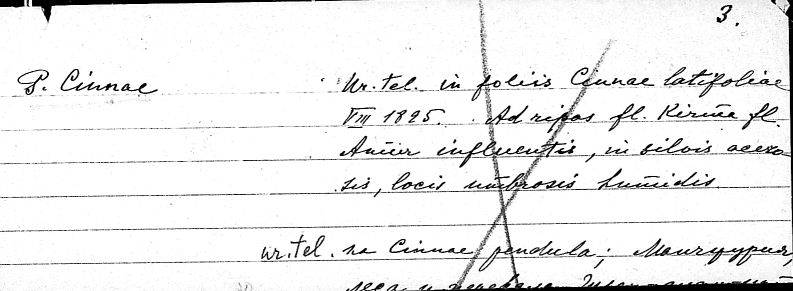 3.
P. Cinnae Ur. tel. in foliis Cinnae latifoliae
VIII 1895. Ad ripas fl. Kirma fl.
Amur influentis, in silvis acero-
sis, locis umbrosis humidis.
ur. tel. на Cinnae pendula; Манчурия,
леса